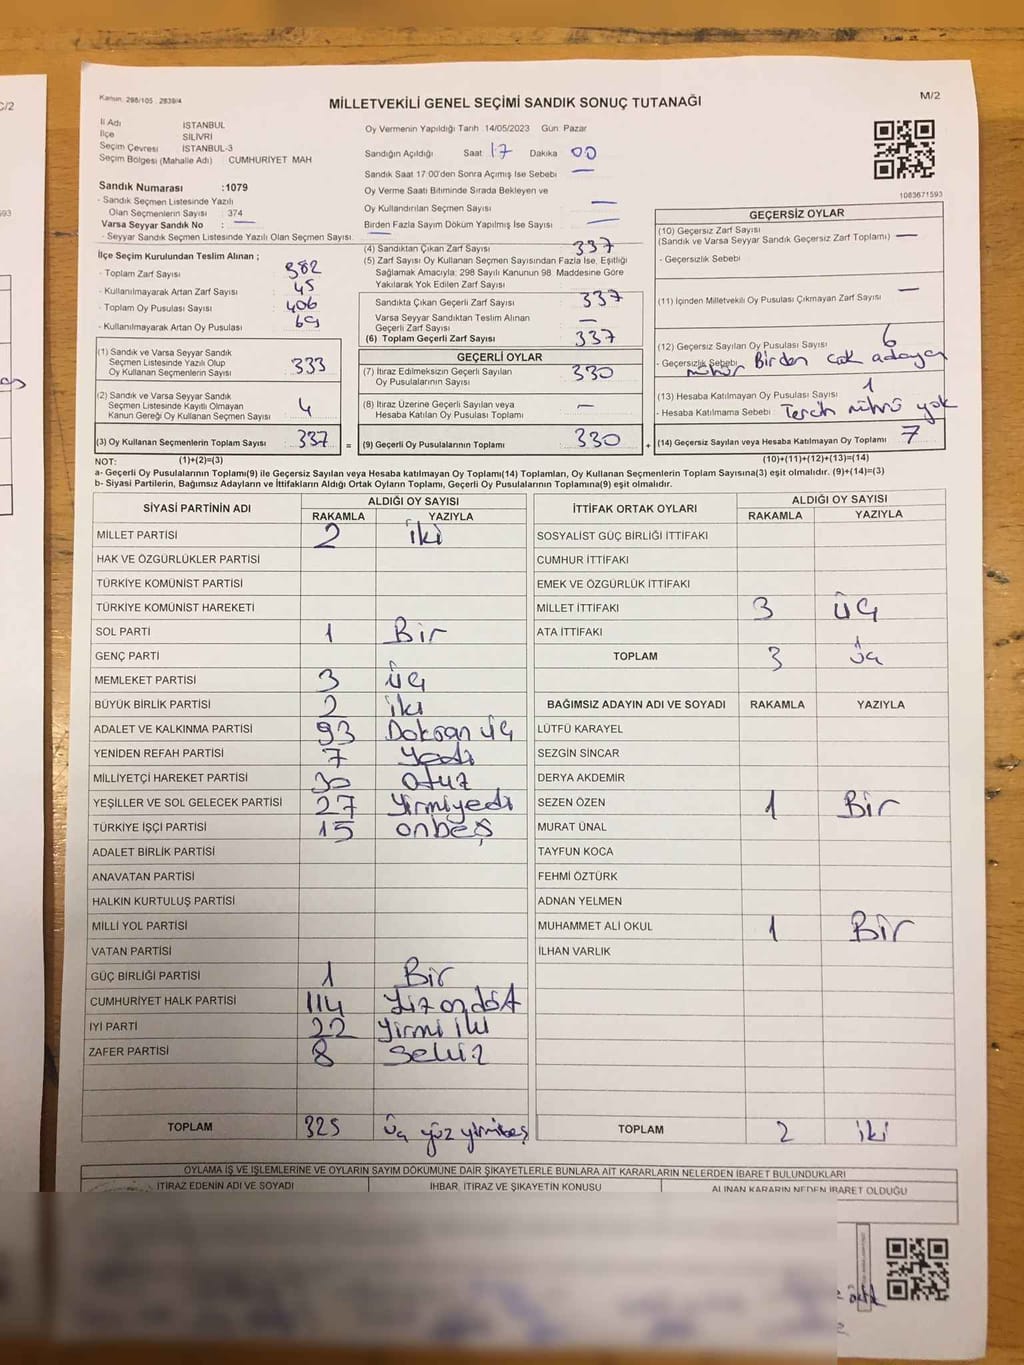 Kanun: 298/105 . 2839/4
MİLLETVEKİLİ GENEL SEÇİMİ SANDIK SONUÇ TUTANAĞI
M/2
C/2
İl Adı İSTANBUL
İlçe SİLİVRİ
Seçim Çevresi İSTANBUL-3
Seçim Bölgesi (Mahalle Adı) CUMHURİYET MAH
Sandık Numarası :1079
- Sandık Seçmen Listesinde Yazılı
Olan Seçmenlerin Sayısı : 374
Varsa Seyyar Sandık No : —
- Seyyar Sandık Seçmen Listesinde Yazılı Olan Seçmen Sayısı: —
İlçe Seçim Kurulundan Teslim Alınan ;
- Toplam Zarf Sayısı 382
- Kullanılmayarak Artan Zarf Sayısı 45
- Toplam Oy Pusulası Sayısı 406
- Kullanılmayarak Artan Oy Pusulası 69
(1) Sandık ve Varsa Seyyar Sandık
Seçmen Listesinde Yazılı Olup
Oy Kullanan Seçmenlerin Sayısı 333
(2) Sandık ve Varsa Seyyar Sandık
Seçmen Listesinde Kayıtlı Olmayan
Kanun Gereği Oy Kullanan Seçmen Sayısı 4
(3) Oy Kullanan Seçmenlerin Toplam Sayısı 337 =
Oy Vermenin Yapıldığı Tarih 14/05/2023 Gün: Pazar
Sandığın Açıldığı Saat 17 Dakika 00
Sandık Saat 17:00'den Sonra Açılmış İse Sebebi —
Oy Verme Saati Bitiminde Sırada Bekleyen ve
Oy Kullandırılan Seçmen Sayısı —
Birden Fazla Sayım Döküm Yapılmış İse Sayısı —
(4) Sandıktan Çıkan Zarf Sayısı 337
(5) Zarf Sayısı Oy Kullanan Seçmen Sayısından Fazla İse, Eşitliği
Sağlamak Amacıyla; 298 Sayılı Kanunun 98. Maddesine Göre
Yakılarak Yok Edilen Zarf Sayısı
Sandıkta Çıkan Geçerli Zarf Sayısı 337
Varsa Seyyar Sandıktan Teslim Alınan
Geçerli Zarf Sayısı —
(6) Toplam Geçerli Zarf Sayısı 337
GEÇERLİ OYLAR
(7) İtiraz Edilmeksizin Geçerli Sayılan
Oy Pusulalarının Sayısı 330
(8) İtiraz Üzerine Geçerli Sayılan veya
Hesaba Katılan Oy Pusulası Toplamı —
(9) Geçerli Oy Pusulalarının Toplamı 330 +
1083671593
GEÇERSİZ OYLAR
(10) Geçersiz Zarf Sayısı —
(Sandık ve Varsa Seyyar Sandık Geçersiz Zarf Toplamı)
- Geçersizlik Sebebi
(11) İçinden Milletvekili Oy Pusulası Çıkmayan Zarf Sayısı —
(12) Geçersiz Sayılan Oy Pusulası Sayısı 6
- Geçersizlik Sebebi Birden çok adaya
mühür
(13) Hesaba Katılmayan Oy Pusulası Sayısı 1
- Hesaba Katılmama Sebebi Tercih mührü yok
(14) Geçersiz Sayılan veya Hesaba Katılmayan Oy Toplamı 7
NOT: (1)+(2)=(3) (10)+(11)+(12)+(13)=(14)
a- Geçerli Oy Pusulalarının Toplamı(9) ile Geçersiz Sayılan veya Hesaba katılmayan Oy Toplamı(14) Toplamları, Oy Kullanan Seçmenlerin Toplam Sayısına(3) eşit olmalıdır. (9)+(14)=(3)
b- Siyasi Partilerin, Bağımsız Adayların ve İttifakların Aldığı Ortak Oyların Toplamı, Geçerli Oy Pusulalarının Toplamına(9) eşit olmalıdır.
SİYASİ PARTİNİN ADI ALDIĞI OY SAYISI
RAKAMLA YAZIYLA
MİLLET PARTİSİ 2 iki
HAK VE ÖZGÜRLÜKLER PARTİSİ
TÜRKİYE KOMÜNİST PARTİSİ
TÜRKİYE KOMÜNİST HAREKETİ
SOL PARTİ 1 Bir
GENÇ PARTİ
MEMLEKET PARTİSİ 3 üç
BÜYÜK BİRLİK PARTİSİ 2 iki
ADALET VE KALKINMA PARTİSİ 93 Doksan üç
YENİDEN REFAH PARTİSİ 7 yedi
MİLLİYETÇİ HAREKET PARTİSİ 30 otuz
YEŞİLLER VE SOL GELECEK PARTİSİ 27 Yirmiyedi
TÜRKİYE İŞÇİ PARTİSİ 15 onbeş
ADALET BİRLİK PARTİSİ
ANAVATAN PARTİSİ
HALKIN KURTULUŞ PARTİSİ
MİLLİ YOL PARTİSİ
VATAN PARTİSİ
GÜÇ BİRLİĞİ PARTİSİ 1 Bir
CUMHURİYET HALK PARTİSİ 114 yüz ondört
İYİ PARTİ 22 yirmi iki
ZAFER PARTİSİ 8 sekiz
TOPLAM 325 üç yüz yirmibeş
İTTİFAK ORTAK OYLARI ALDIĞI OY SAYISI
RAKAMLA YAZIYLA
SOSYALİST GÜÇ BİRLİĞİ İTTİFAKI
CUMHUR İTTİFAKI
EMEK VE ÖZGÜRLÜK İTTİFAKI
MİLLET İTTİFAKI 3 üç
ATA İTTİFAKI
TOPLAM 3 üç
BAĞIMSIZ ADAYIN ADI VE SOYADI RAKAMLA YAZIYLA
LÜTFÜ KARAYEL
SEZGİN SİNCAR
DERYA AKDEMİR
SEZEN ÖZEN 1 Bir
MURAT ÜNAL
TAYFUN KOCA
FEHMİ ÖZTÜRK
ADNAN YELMEN
MUHAMMET ALİ OKUL 1 Bir
İLHAN VARLIK
TOPLAM 2 iki
OYLAMA İŞ VE İŞLEMLERİNE VE OYLARIN SAYIM DÖKÜMÜNE DAİR ŞİKAYETLERLE BUNLARA AİT KARARLARIN NELERDEN İBARET BULUNDUKLARI
İTİRAZ EDENİN ADI VE SOYADI İHBAR, İTİRAZ VE ŞİKAYETİN KONUSU ALINAN KARARIN NEDEN İBARET OLDUĞU